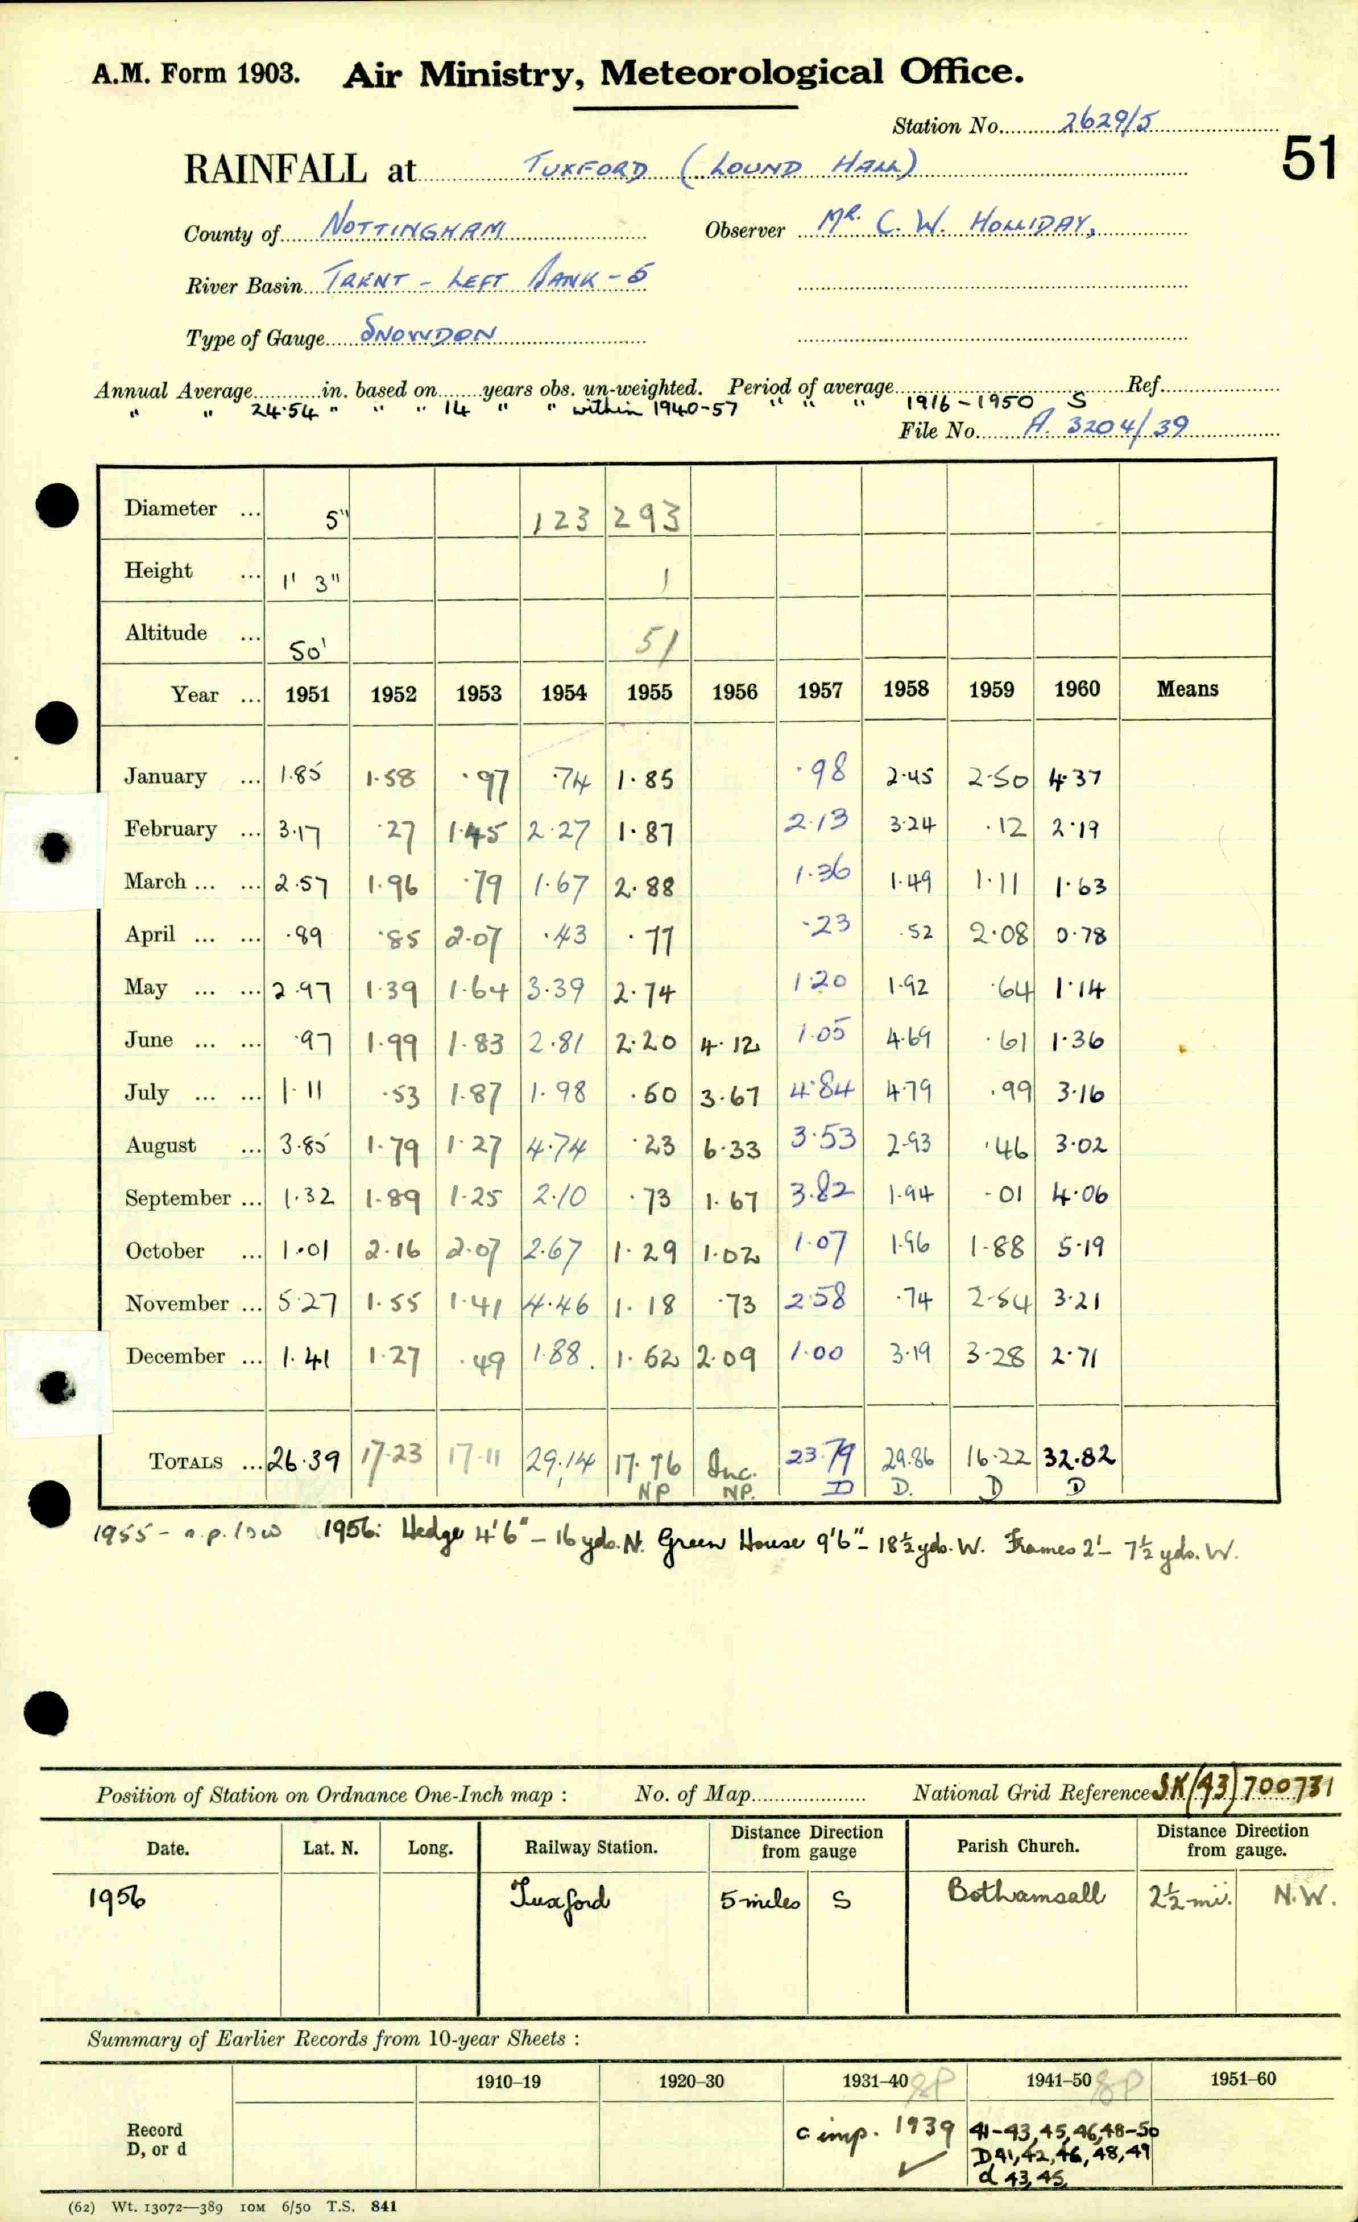 A.M. Form 1903. Air Ministry, Meteorological Office.
Station No. 2629/5
51
RAINFALL at TUXFORD (LOUND HALL)
County of NOTTINGHAM Observer MR. C. W. HOLLIDAY,
River Basin TRENT - LEFT BANK - 5
Type of Gauge SNOWDON
Annual Average in. based on years obs. un-weighted. Period of average Ref.
" " 24.54 " " " 14 " " within 1940-57 " " " 1916-1950 S
File No. A. 3204/39
Diameter ... 5" 123 293
Height ... 1' 3" 1
Altitude ... 50' 51
Year ... 1951 1952 1953 1954 1955 1956 1957 1958 1959 1960 Means
January ... 1.85 1.58 .97 .74 1.85 .98 2.45 2.50 4.37
February ... 3.17 .27 1.45 2.27 1.87 2.13 3.24 .12 2.19
March ... ... 2.57 1.96 .79 1.67 2.88 1.36 1.49 1.11 1.63
April ... ... .89 .85 2.07 .43 .77 .23 .52 2.08 0.78
May ... ... 2.97 1.39 1.64 3.39 2.74 1.20 1.92 .64 1.14
June ... ... .97 1.99 1.83 2.81 2.20 4.12 1.05 4.69 .61 1.36
July ... ... 1.11 .53 1.87 1.98 .60 3.67 4.84 4.79 .99 3.16
August ... 3.85 1.79 1.27 4.74 .23 6.33 3.53 2.93 .46 3.02
September ... 1.32 1.89 1.25 2.10 .73 1.67 3.82 1.94 .01 4.06
October ... 1.01 2.16 2.07 2.67 1.29 1.02 1.07 1.96 1.88 5.19
November ... 5.27 1.55 1.41 4.46 1.18 .73 2.58 .74 2.54 3.21
December ... 1.41 1.27 .49 1.88 1.62 2.09 1.00 3.19 3.28 2.71
TOTALS ... 26.39 17.23 17.11 29.14 17.96 Inc. 23.79 29.86 16.22 32.82
NP NP. D D. D D
1955 - n.p. 1956: Hedge 4'6" - 16 yds. N. Green House 9'6" - 18½ yds. W. Frames 2' - 7½ yds. W.
Position of Station on Ordnance One-Inch map : No. of Map National Grid Reference SK(43)700731
Date. Lat. N. Long. Railway Station. Distance from gauge Direction Parish Church. Distance from gauge. Direction
1956 Tuxford 5 miles S Bothamsall 2½ mi. N.W.
Summary of Earlier Records from 10-year Sheets :
1910–19 1920–30 1931–40 1941–50 1951–60
Record D, or d c imp. 1939 41-43,45,46,48-50
D 41,42,46,48,49
d 43,45,
(62) Wt. 13072—389 10M 6/50 T.S. 841